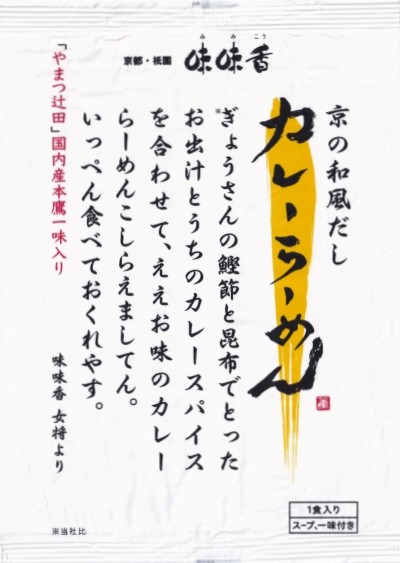 京都・祇園 味味香
みみこう
京の和風だし
カレーらーめん
※ぎょうさんの鰹節と昆布でとった
お出汁とうちのカレースパイス
を合わせて、ええお味のカレー
らーめんこしらえましてん。
いっぺん食べておくれやす。
味味香 女将より
「やまつ辻田」国内産本鷹一味入り
1食入り
スープ、一味付き
※当社比